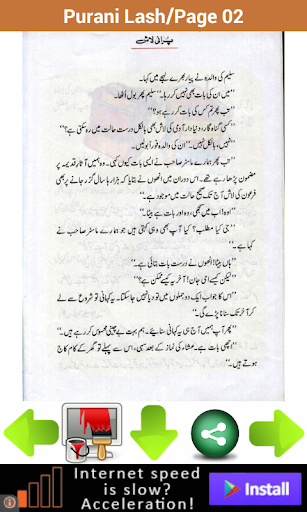 Purani Lash/Page 02
پرانی لاش
سلیم کی والدہ نے پیار بھرے لہجے میں کہا۔
"میں ان کی بات بھی نہیں کر رہا۔" سلیم پھر بول اُٹھا۔
"تب پھر تم کس کی بات کر رہے ہو؟"
"کسی گناہ گار، دنیادار آدمی کی لاش بھی بالکل درست حالت میں رہ سکتی ہے؟"
"نہیں، بالکل نہیں۔" ان کی والدہ فوراً بولیں۔
"تب پھر ہمارے ماسٹر صاحب نے ایسی بات کیوں کہی۔ وہ ہمیں آثار قدیمہ پر
مضمون پڑھا رہے تھے۔ اس دوران میں انھوں نے بتایا کہ ہزارہا سال گزر جانے پر بھی
فرعون کی لاش آج تک صحیح حالت میں موجود ہے۔"
"اوہ! اب میں سمجھی، وہ اور بات ہے بیٹا۔"
"جی کیا مطلب؟ کیا آپ بھی وہی کہتی ہیں جو ہمارے ماسٹر صاحب نے
کہا ہے۔"
"ہاں بیٹا! انھوں نے درست بات بتائی ہے۔"
"لیکن کیسے امی جان! آخر یہ کیسے ممکن ہے؟"
"اس کا جواب ایک دو جملوں میں تو دیا نہیں جا سکتا۔ یہ کہانی تو شروع سے لے
کر آخر تک سنانا پڑے گی۔"
"پھر آپ ہمیں آج ہی یہ کہانی سنائیے۔ ہم بہت بے چینی محسوس کر رہے ہیں۔"
"اچھی بات ہے۔ عشاء کی نماز کے بعد سہی، اس سے پہلے تو گھر کے کام کاج
ہوتے ہیں۔"
Internet speed
is slow?
Acceleration!
Install